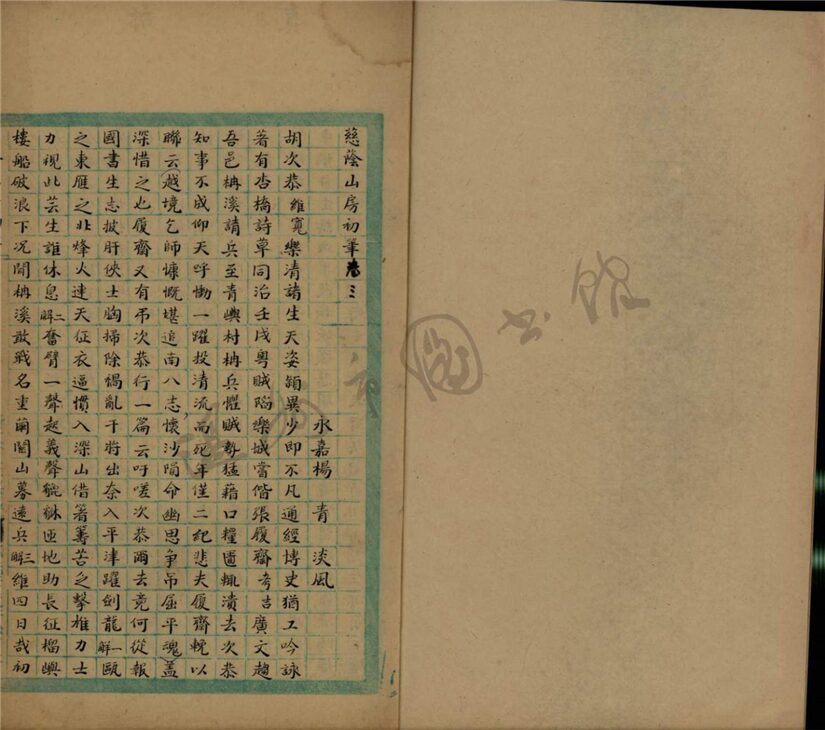 慈蔭山房初筆卷三
永嘉楊青淡風
胡次恭維寬樂清諸生天姿頴異少即不凡通經博史猶工吟詠
著有杏橋詩草同治壬戌粵賊陷樂城嘗偕張履齋考吉廣文趨
吾邑枏溪請兵至青嶼村枏兵懼賊勢猛藉口糧匱輒潰去次恭
知事不成仰天呼慟一躍投清流而死年僅二紀悲夫履齋輓以
聯云越境乞師慷慨堪追南八志懷沙隕命幽思爭吊屈平魂蓋
深惜之也履齋又有弔次恭行一篇云吁嗟次恭爾去竟何從報
國書生志披肝俠士胸掃除禍亂干將出奈入平津躍劍龍解一甌
之東雁之北烽火連天征衣逼慣入深山借箸籌苦乏擊椎力士
力視此芸生誰休息解二奮臂一聲起義聲貔貅匝地助長征榴嶼
樓船破浪下況聞枏溪敢戰名重繭關山募遠兵解三維四日哉初